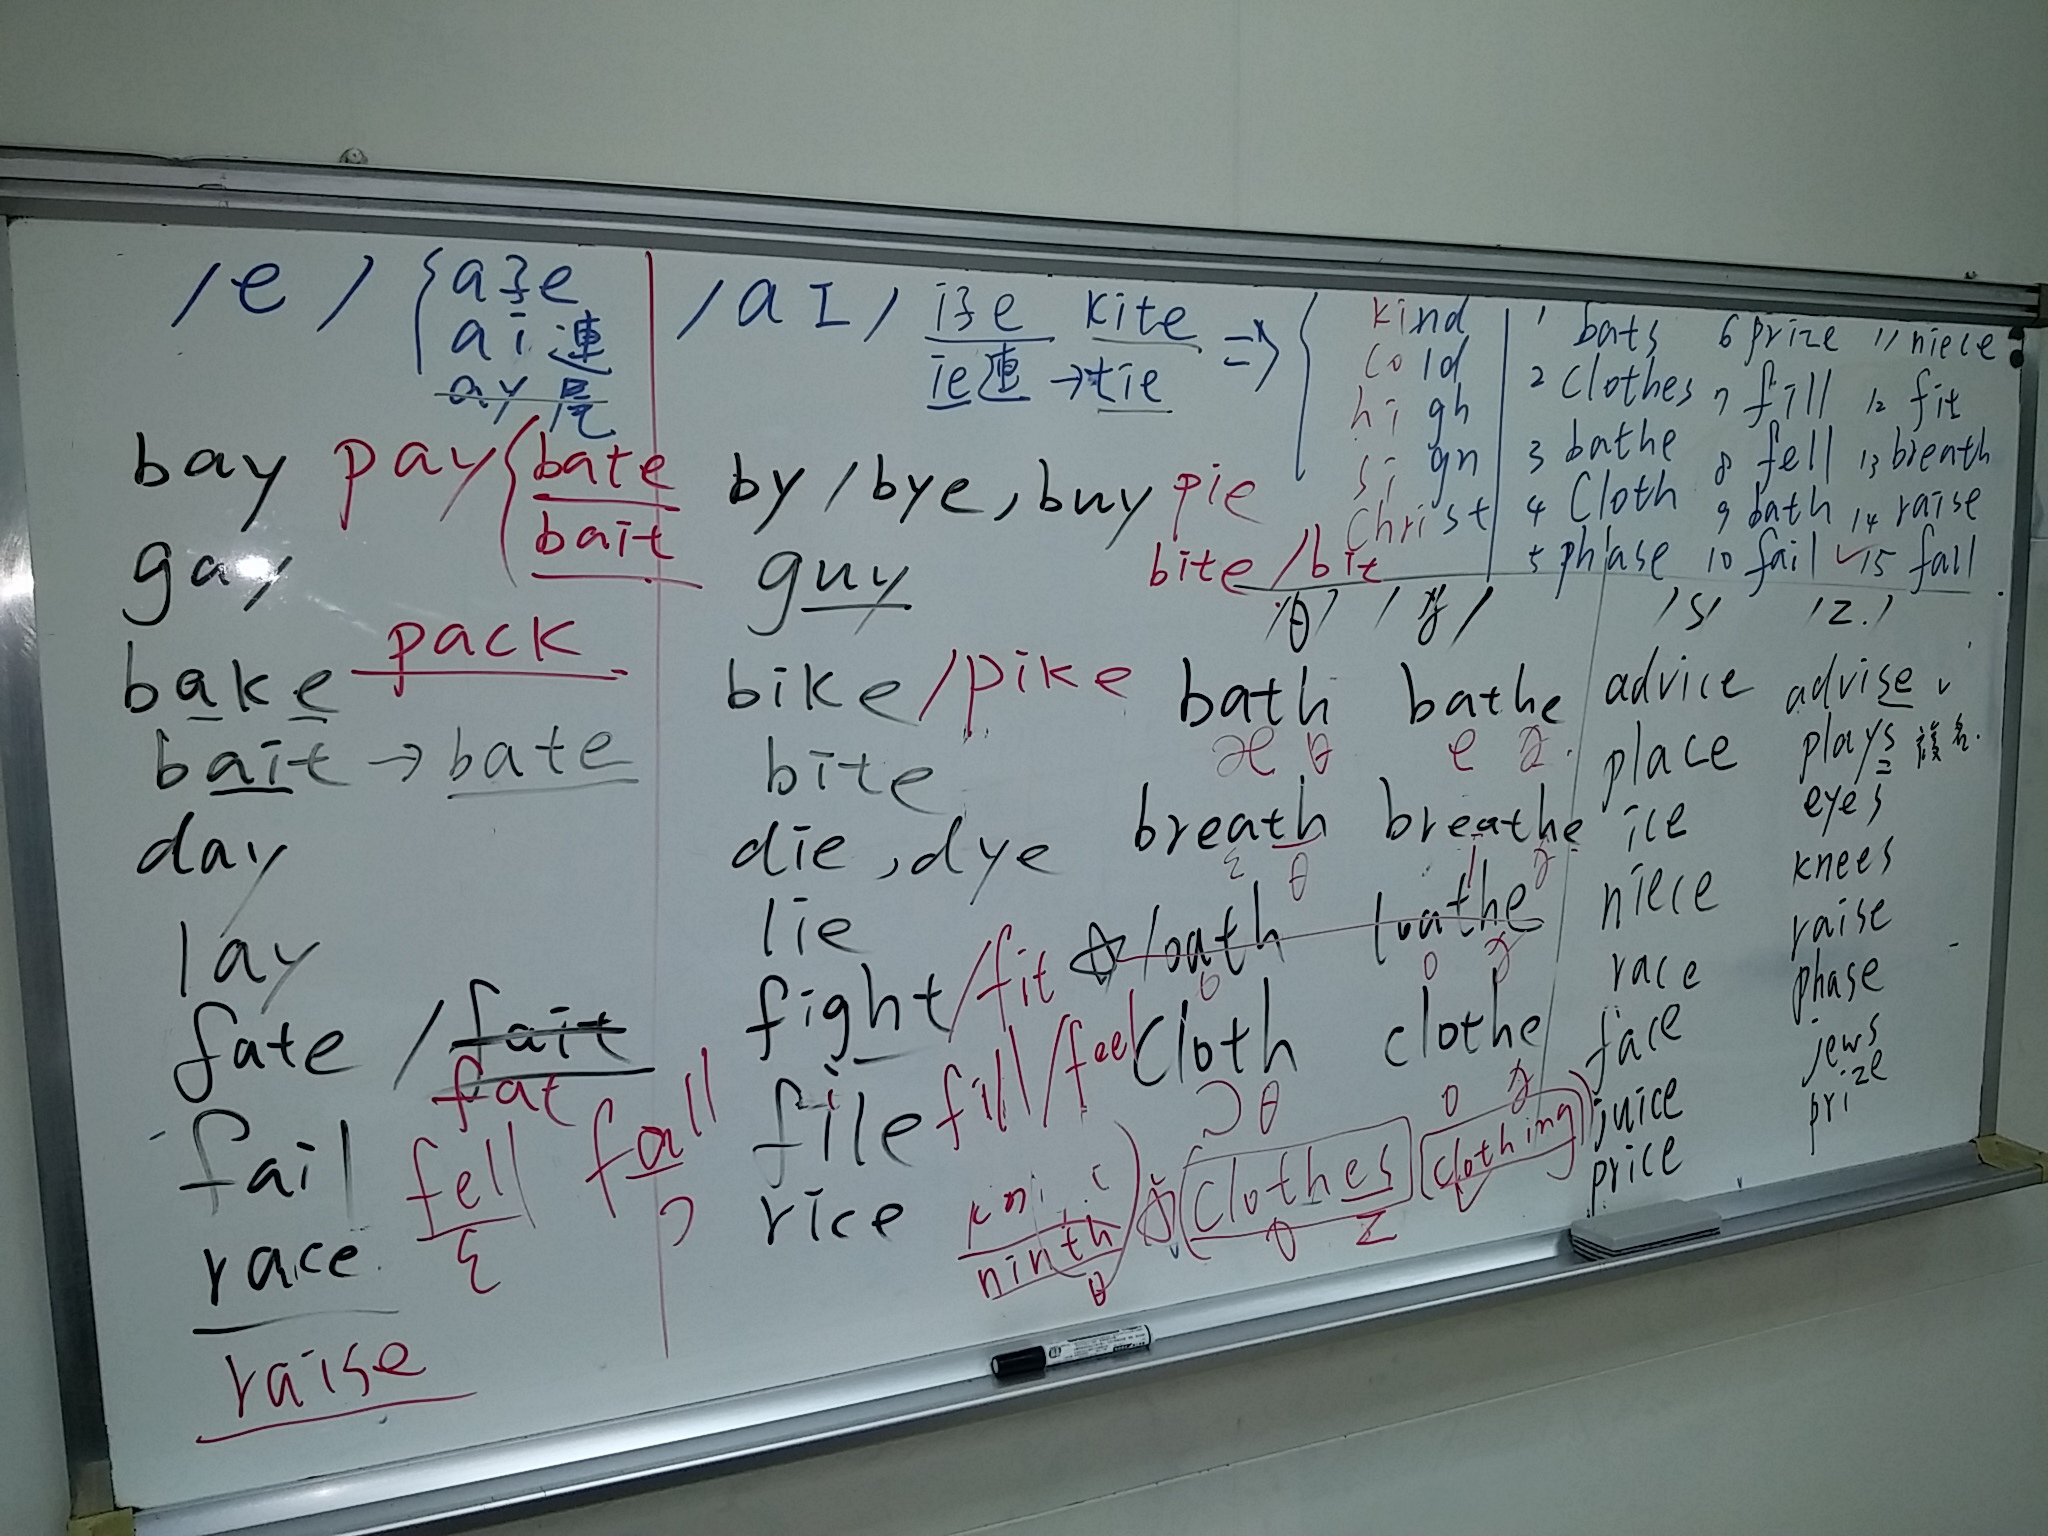 /e/ { a子e
ai連
ay尾
/aI/ i子e kite =>
ie連 → tie
kind
cold
high
sign
Christ
1 bats 6 prize 11 niece
2 clothes 7 fill 12 fit
3 bathe 8 fell 13 breath
4 cloth 9 bath 14 raise
5 phrase 10 fail ✓ 15 fall
bay pay { bate
bait
gay
bake pack
bait → bate
day
lay
fate / fait
fat
fail fell fall
ɛ ɔ
race
raise
by / bye, buy pie
bite / bit
guy
bike / pike
bite
die, dye
lie
fight / fit
file fill / feel
rice
ninth
θ
/θ/ /ð/
bath bathe
æ θ e ð
breath breathe
ɛ θ i ð
☆ loath loathe
o o ð
cloth clothe
ɔ θ o ð
☆ clothes clothing
o z
/s/ /z/
advice advise ✓
place plays
z
ice eyes
niece knees
race raise
face phase
juice jews
price prize